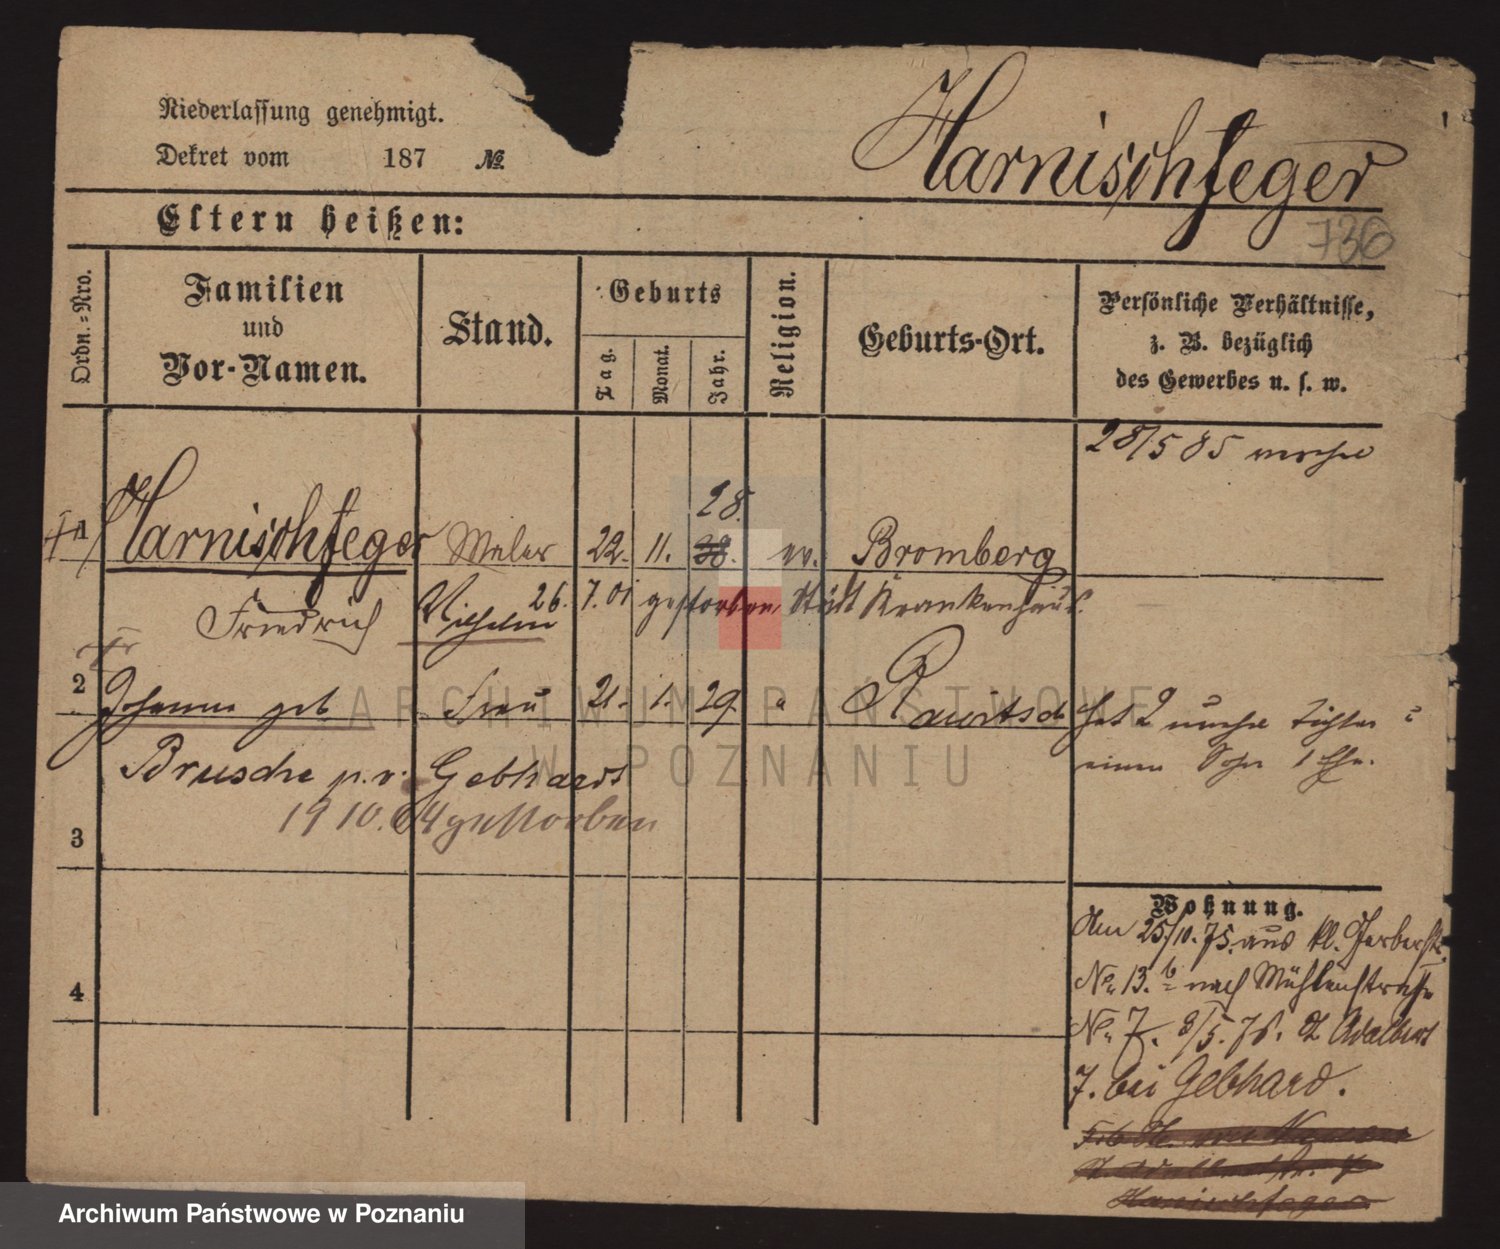 Niederlassung genehmigt.
Dekret vom 187 №
Harnischfeger
736
Eltern heißen:
Ordn.-Nro.
Familien
und
Vor-Namen.
Stand.
Geburts
Tag.
Monat.
Jahr.
Religion.
Geburts-Ort.
Persönliche Verhältnisse,
z. B. bezüglich
des Gewerbes u. s. w.
28/5 85
28.
1 Harnischfeger Maler 22. 11. 38. ev. Bromberg
Friedrich Wilhelm 26. 7. 01 gestorben Städt Krankenhaus.
2 Johanna geb Frau 21. 1. 29. " Rawitsch hat 2 Töchter
einen Sohn 1 Ehe.
Brusche p. v. Gebhardt
19 10. 04 gestorben
3
4
Wohnung.
Am 25/10. 75. aus kl. Gerberstr.
No. 13. b nach Mühlenstraße
No. 7. 8/5. 76. St Adalbert
7. bei Gebhard.
Harnischfeger
ARCHIWUM PAŃSTWOWE
W POZNANIU
Archiwum Państwowe w Poznaniu